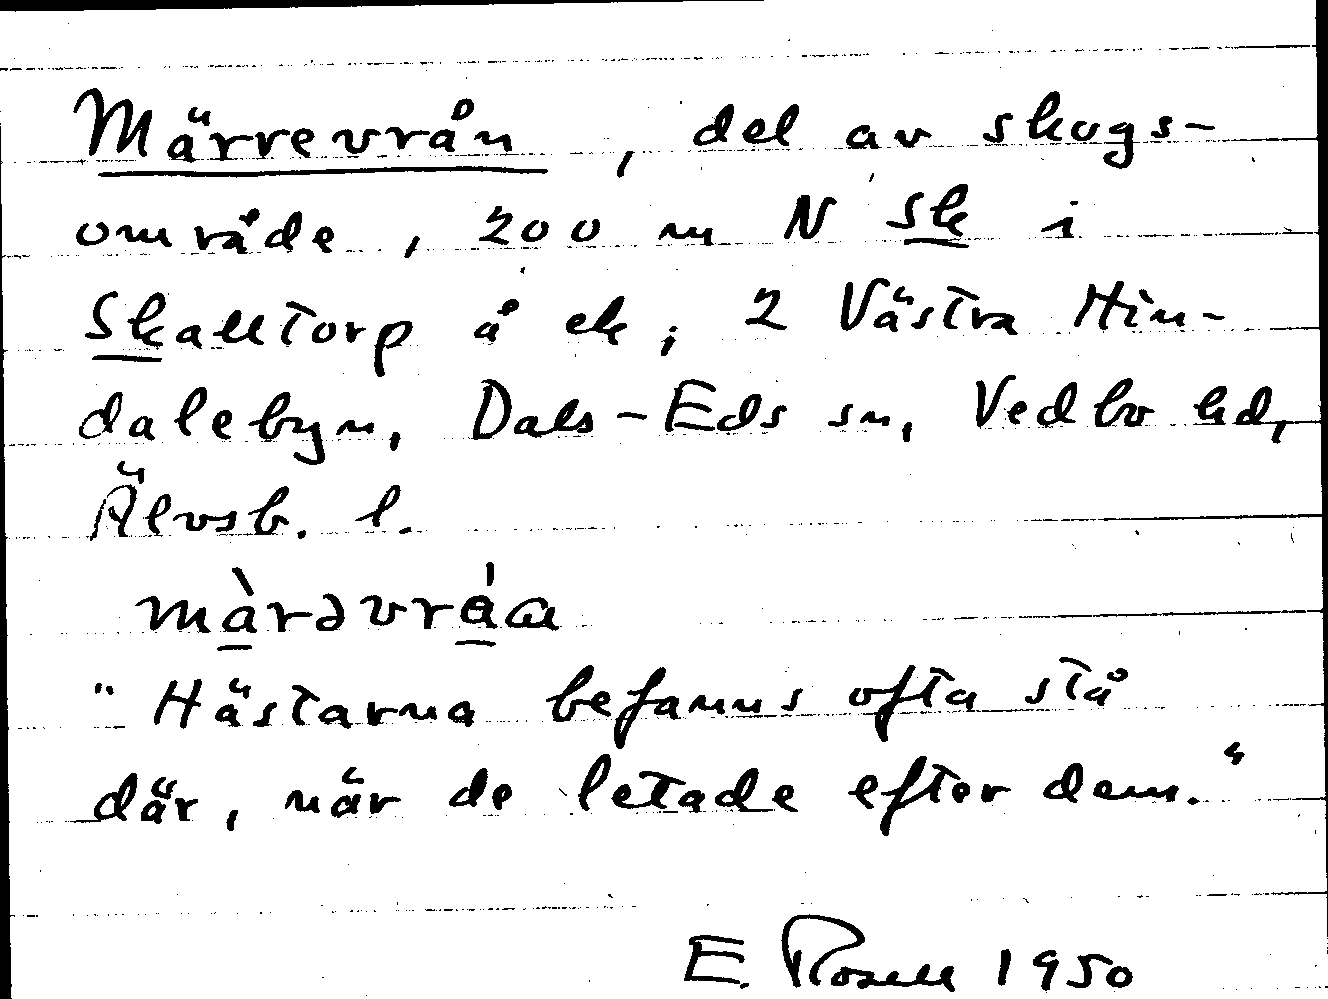 Märrevrån, del av skogs-
område, 200 m N Sk i
Skalltorp å ek; 2 Västra Hin-
dalebyn, Dals-Eds sn, Vedbo hd,
Älvsb. l.
màrəvrá
"Hästarna befanns ofta stå
där, när de letade efter dem."
E. Rosell 1950